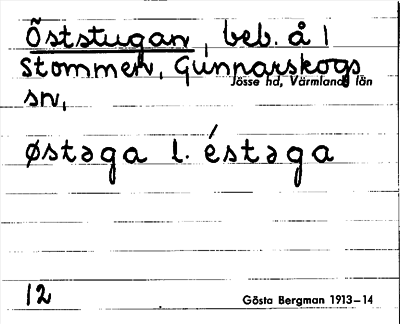 Öststugan, beb. å 1
Stommen, Gunnarskogs
Jösse hd, Värmlands län
sn,
østəga l. éstəga
12
Gösta Bergman 1913–14